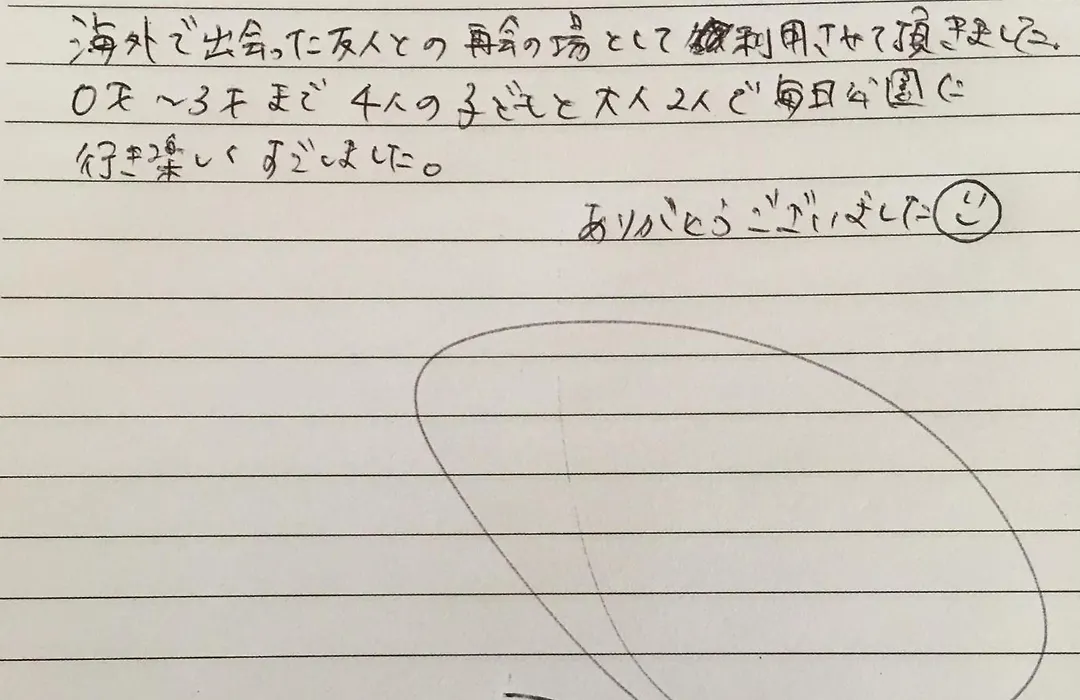 海外で出会った友人との再会の場として利用させて頂きました。
0才～3才まで4人の子どもと大人2人で毎日公園に
行き楽しくすごしました。
ありがとうございました